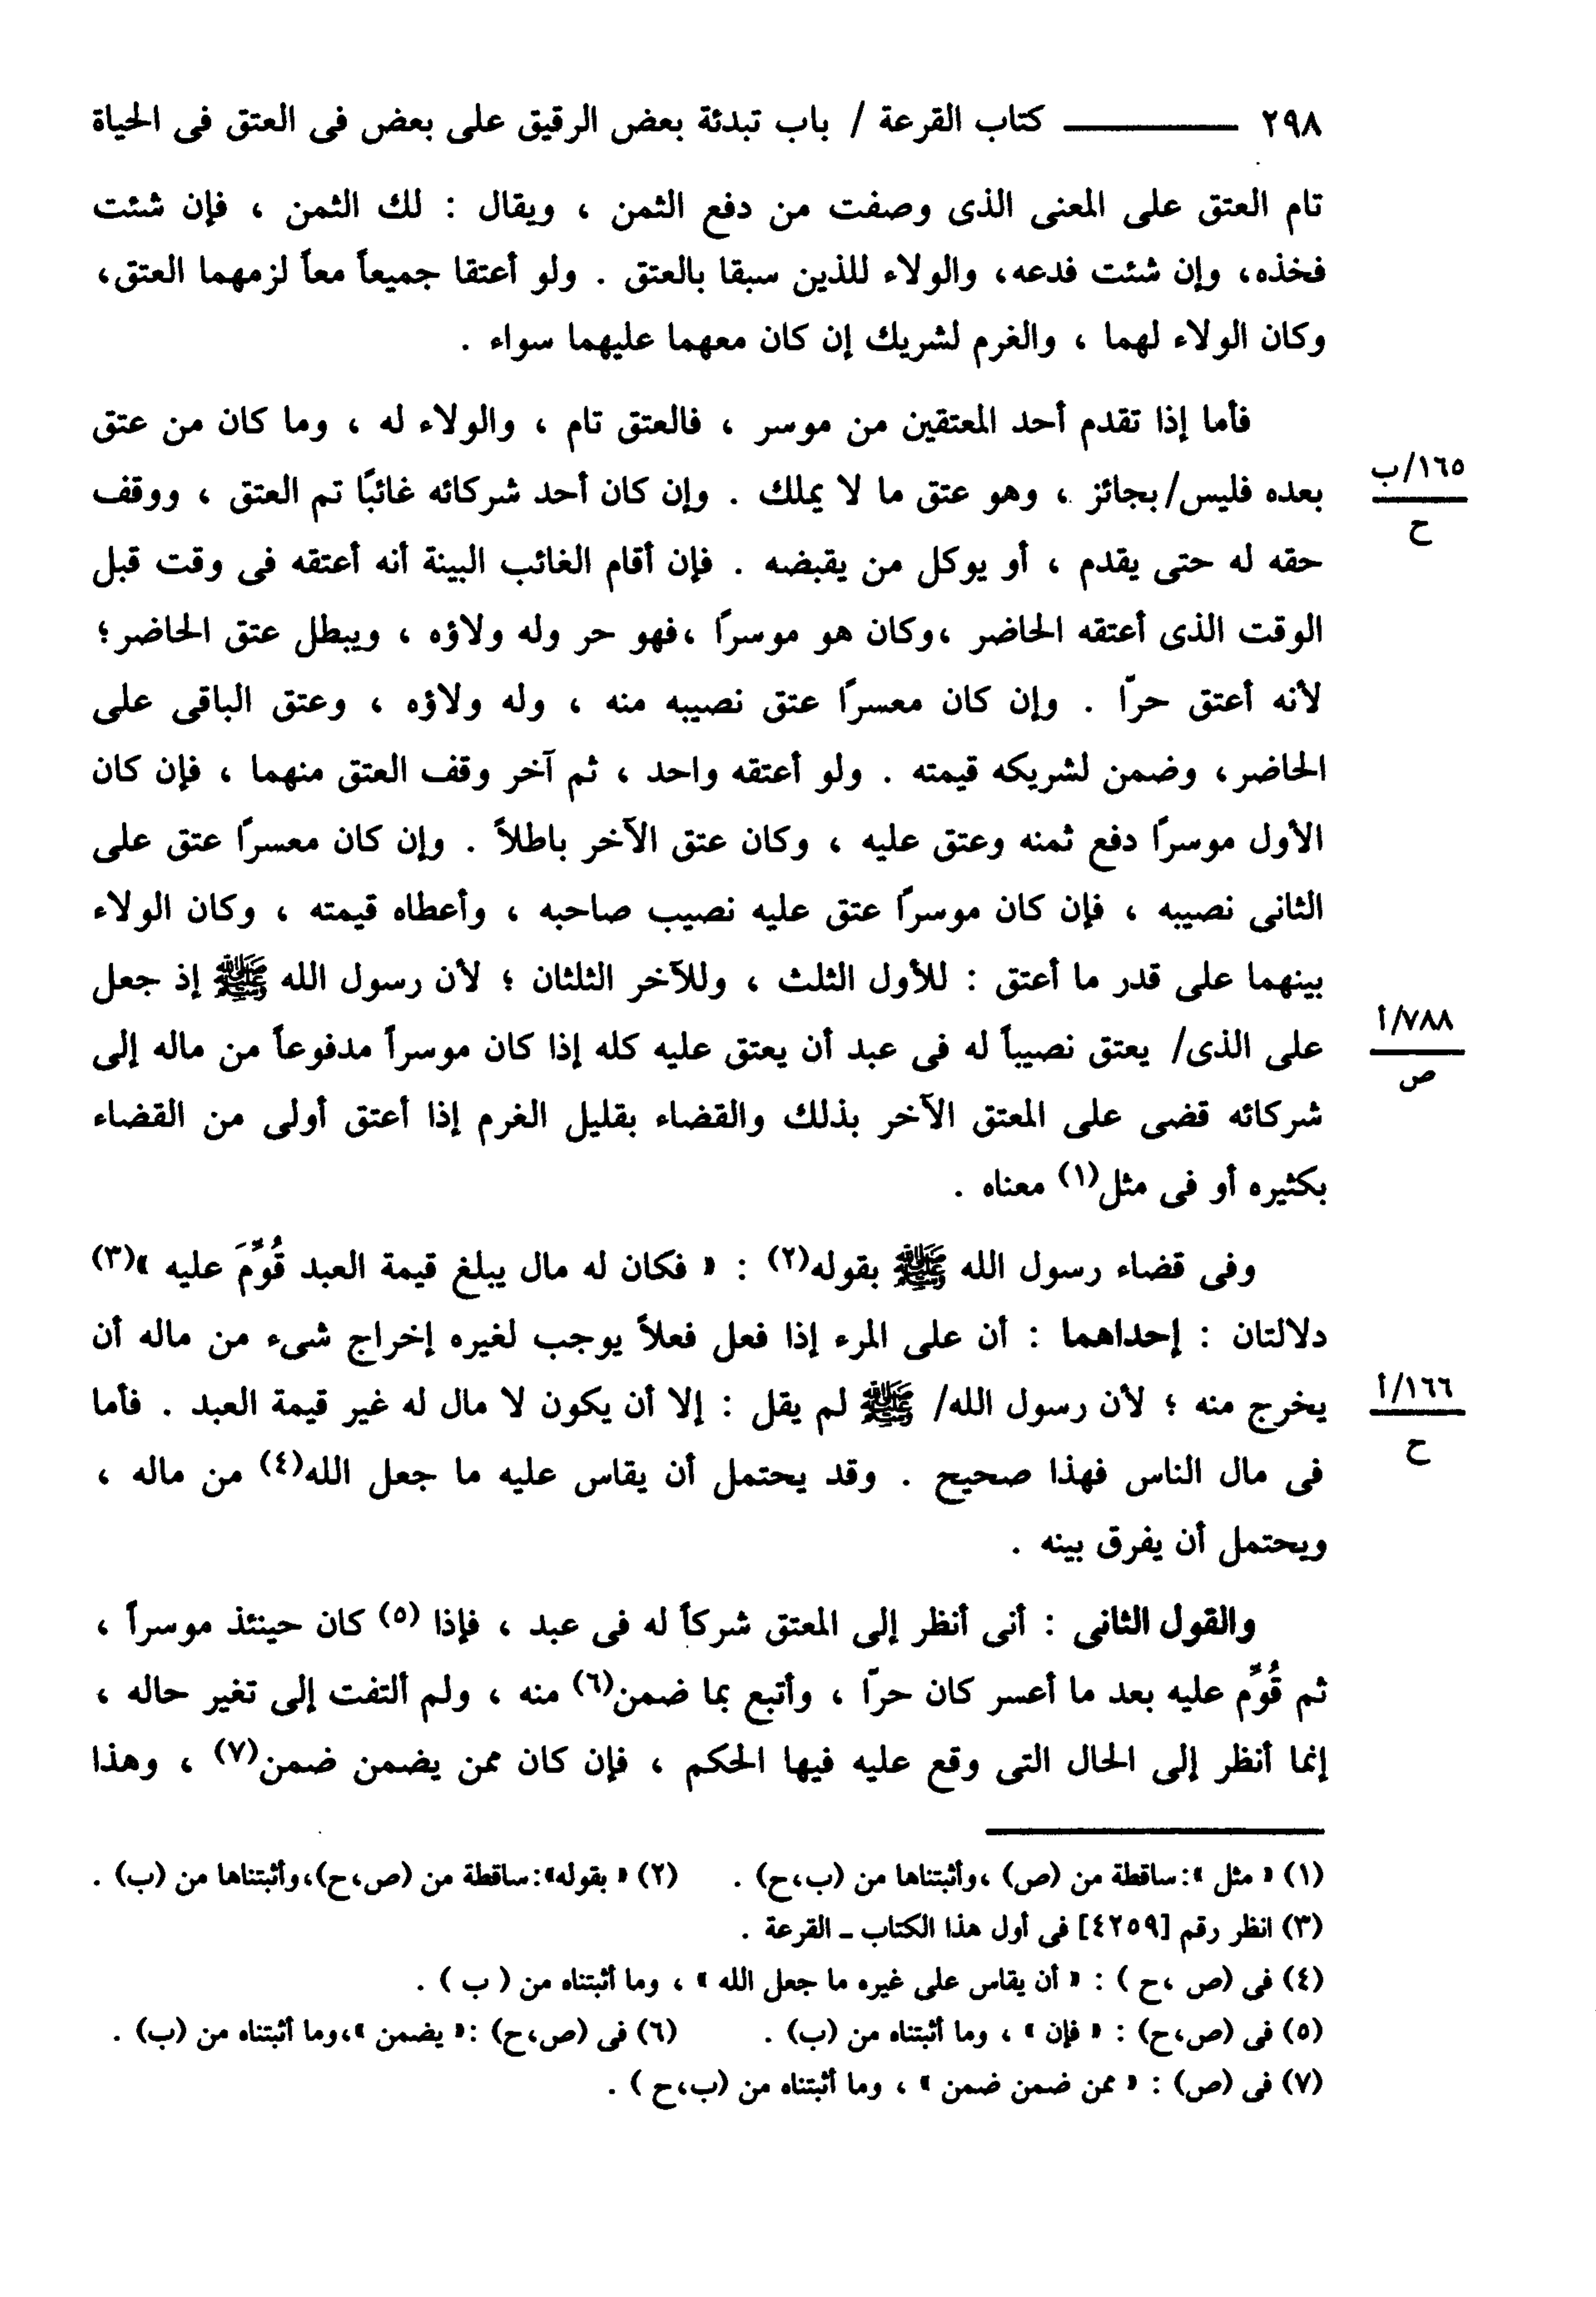 ٢٩٨ ــــــــــــ كتاب القرعة / باب تبدئة بعض الرقيق على بعض فى العتق فى الحياة
تام العتق على المعنى الذى وصفت من دفع الثمن ، ويقال : لك الثمن ، فإن شئت
فخذه، وإن شئت فدعه، والولاء للذين سبقا بالعتق . ولو أعتقا جميعاً معاً لزمهما العتق،
وكان الولاء لهما ، والغرم لشريك إن كان معهما عليهما سواء .
فأما إذا تقدم أحد المعتقين من موسر ، فالعتق تام ، والولاء له ، وما كان من عتق
١٦٥/ب
ح
بعده فليس/بجائز ، وهو عتق ما لا يملك . وإن كان أحد شركائه غائبًا تم العتق ، ووقف
حقه له حتى يقدم ، أو يوكل من يقبضه . فإن أقام الغائب البينة أنه أعتقه فى وقت قبل
الوقت الذى أعتقه الحاضر ،وكان هو موسرًا ،فهو حر وله ولاؤه ، ويبطل عتق الحاضر؛
لأنه أعتق حرّا . وإن كان معسرًا عتق نصيبه منه ، وله ولاؤه ، وعتق الباقى على
الحاضر، وضمن لشريكه قيمته . ولو أعتقه واحد ، ثم آخر وقف العتق منهما ، فإن كان
الأول موسرًا دفع ثمنه وعتق عليه ، وكان عتق الآخر باطلاً . وإن كان معسرًا عتق على
الثانى نصيبه ، فإن كان موسرًا عتق عليه نصيب صاحبه ، وأعطاه قيمته ، وكان الولاء
بينهما على قدر ما أعتق : للأول الثلث ، وللآخر الثلثان ؛ لأن رسول الله ﷺ إذ جعل
٧٨٨/أ
ص
على الذى/ يعتق نصيباً له فى عبد أن يعتق عليه كله إذا كان موسراً مدفوعاً من ماله إلى
شركائه قضى على المعتق الآخر بذلك والقضاء بقليل الغرم إذا أعتق أولى من القضاء
بكثيره أو فى مثل(١) معناه .
وفى قضاء رسول الله ﷺ بقوله(٢) : « فكان له مال يبلغ قيمة العبد قُوِّمَ عليه »(٣)
دلالتان : إحداهما : أن على المرء إذا فعل فعلاً يوجب لغيره إخراج شىء من ماله أن
١٦٦/أ
ح
يخرج منه ؛ لأن رسول الله/ ﷺ لم يقل : إلا أن يكون لا مال له غير قيمة العبد . فأما
فى مال الناس فهذا صحيح . وقد يحتمل أن يقاس عليه ما جعل الله(٤) من ماله ،
ويحتمل أن يفرق بينه .
والقول الثانى : أنى أنظر إلى المعتق شركاً له فى عبد ، فإذا (٥) كان حينئذ موسراً ،
ثم قُوِّم عليه بعد ما أعسر كان حرّا ، وأتبع بما ضمن(٦) منه ، ولم ألتفت إلى تغير حاله ،
إنما أنظر إلى الحال التى وقع عليه فيها الحكم ، فإن كان ممن يضمن ضمن(٧) ، وهذا
(١) « مثل »: ساقطة من (ص) ،وأثبتناها من (ب،ح) . (٢) « بقوله»:ساقطة من (ص،ح)،وأثبتناها من (ب) .
(٣) انظر رقم [٤٢٥٩] فى أول هذا الكتاب ـ القرعة .
(٤) فى (ص ،ح ) : « أن يقاس على غيره ما جعل الله » ، وما أثبتناه من ( ب ) .
(٥) فى (ص،ح) : « فإن » ، وما أثبتناه من (ب) . (٦) فى (ص،ح) :« يضمن »،وما أثبتناه من (ب) .
(٧) فى (ص) : « ممن ضمن ضمن » ، وما أثبتناه من (ب،ح ) .